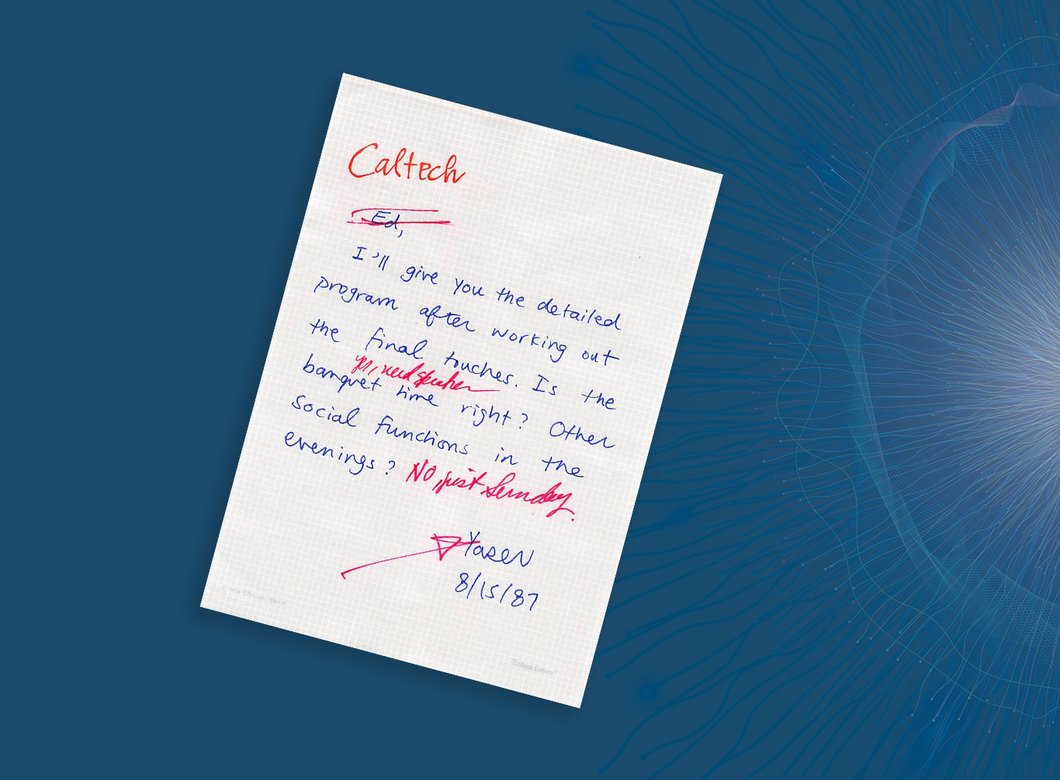 Caltech
Ed,
I'll give you the detailed
program after working out
the final touches. Is the
need speaker
banquet time right? Other
social functions in the
evenings? NO, just Sunday.
Yaser
8/15/87